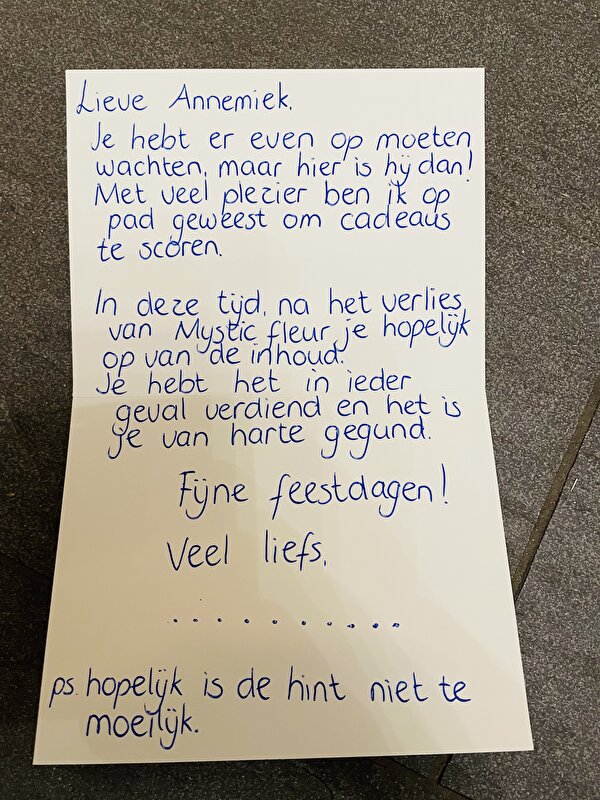 Lieve Annemiek,
Je hebt er even op moeten
wachten, maar hier is hij dan!
Met veel plezier ben ik op
pad geweest om cadeaus
te scoren.
In deze tijd, na het verlies
van Mystic fleur je hopelijk
op van de inhoud.
Je hebt het in ieder
geval verdiend en het is
je van harte gegund.
Fijne feestdagen!
Veel liefs,
..........
ps. hopelijk is de hint niet te
moeilijk.